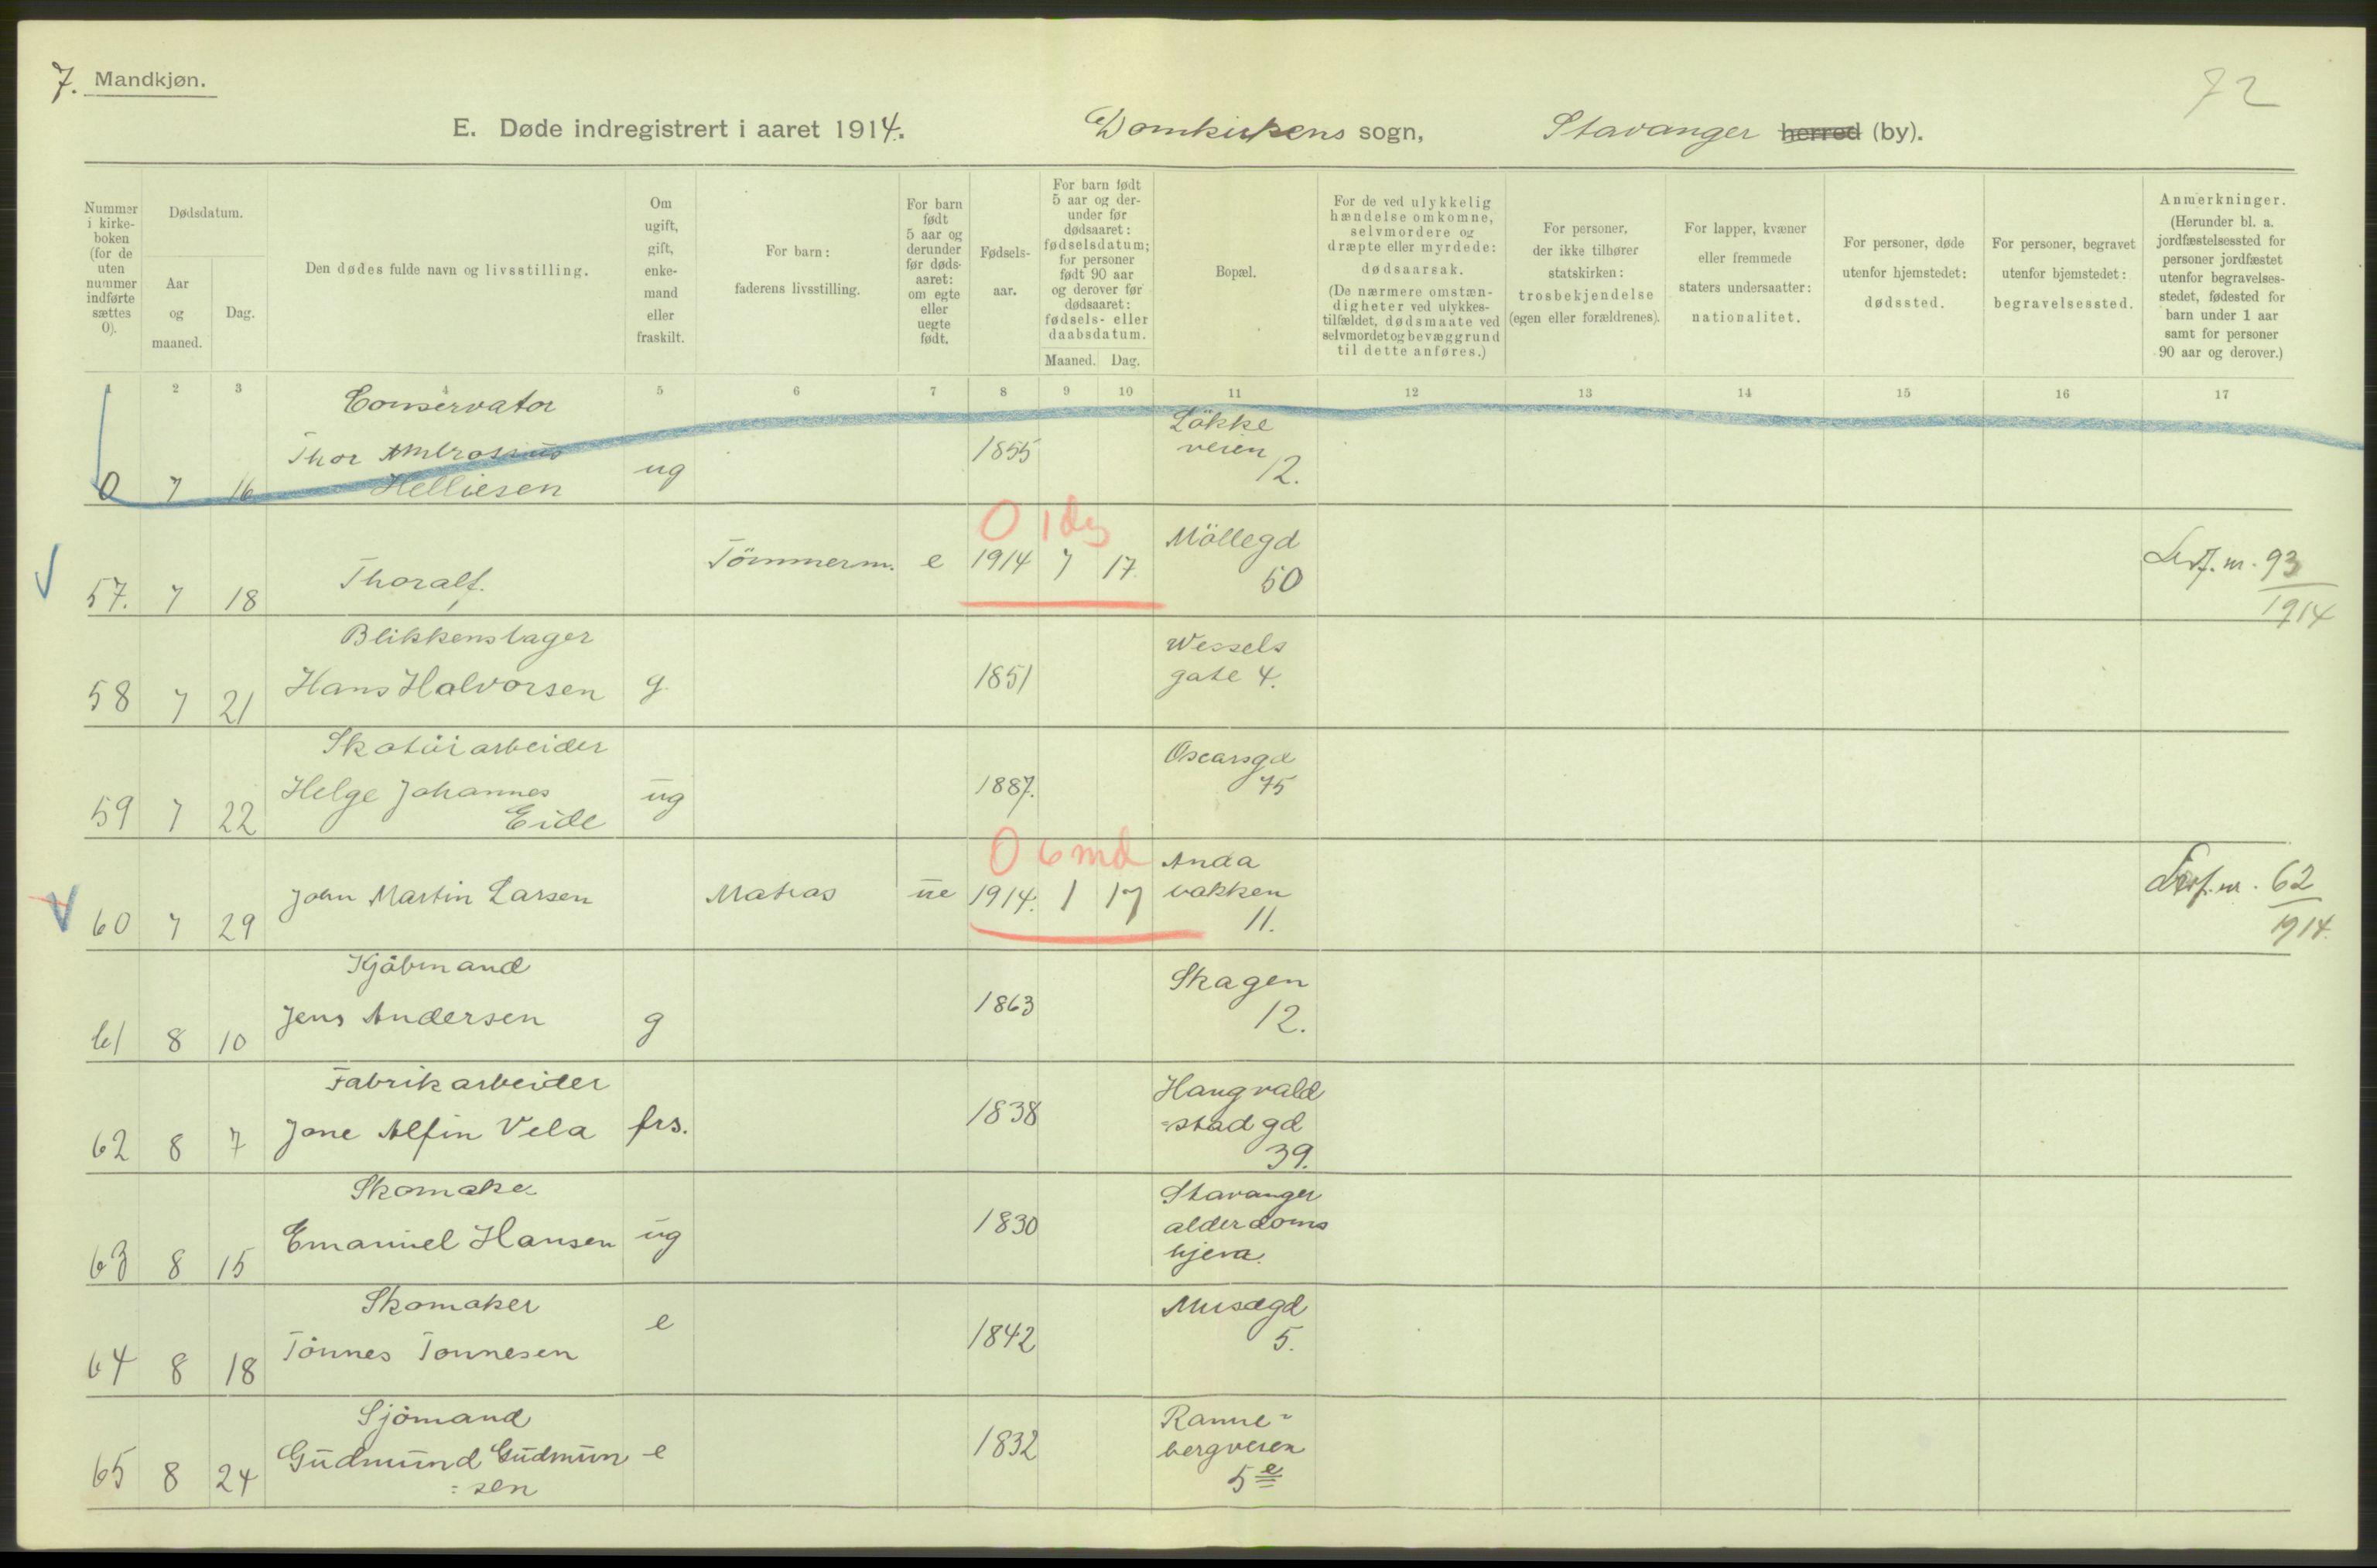 7. Mandkjøn.
72
E. Døde indregistrert i aaret 1914. Domkirkens sogn, Stavanger herred (by).
Nummer i kirke- boken (for de uten nummer indførte sættes 0).
Dødsdatum.
Aar og maaned.
Dag.
Den dødes fulde navn og livsstilling.
Om ugift, gift, enke- mand eller fraskilt.
For barn: faderens livsstilling.
For barn født 5 aar og derunder før døds- aaret: om egte eller uegte født.
Fødsels- aar.
For barn født 5 aar og der- under før dødsaaret: fødselsdatum; for personer født 90 aar og derover før dødsaaret: fødsels- eller daabsdatum.
Maaned. Dag.
Bopæl.
For de ved ulykkelig hændelse omkomne, selvmordere og dræpte eller myrdede: dødsaarsak. (De nærmere omstæn- digheter ved ulykkes- tilfældet, dødsmaate ved selvmordet og bevæggrund til dette anføres.)
For personer, der ikke tilhører statskirken: trosbekjendelse (egen eller forældrenes).
For lapper, kvæner eller fremmede staters undersaatter: nationalitet.
For personer, døde utenfor hjemstedet: dødssted.
For personer, begravet utenfor hjemstedet: begravelsessted.
Anmerkninger. (Herunder bl. a. jordfæstelsessted for personer jordfæstet utenfor begravelses- stedet, fødested for barn under 1 aar samt for personer 90 aar og derover.)
1 2 3 4 5 6 7 8 9 10 11 12 13 14 15 16 17
Conservator
0 7 16 Thor Ambrosius Helliesen ug 1855 Lökke veien 12.
0 1 dg
57. 7 18 Thoralf. Tömmerm. e 1914 7 17. Möllegd 50 93 1914
Blikkenslager
58 7 21 Hans Halvorsen g. 1851 Wessels gate 4.
Skotöiarbeider
59 7 22 Helge Johannes Eide ug 1887. Oscarsgd 75
0 6 md
60 7 29 John Martin Larsen Matros ue 1914. 1 17 bakken 11. 62 1914.
Kjöbmand
61 8 10 Jens Andersen g 1863 Skagen 12.
Fabrikarbeider
62 8 7 Jone Alfin Vela frs. 1838 Haugvald =stad gd 39.
Skomaker
63 8 15 Emanuel Hansen ug 1830 Stavanger alderdoms hjem.
Skomaker
64 8 18 Tönnes Tonnesen e 1842 Musægd 5.
Sjömand
65 8 24 Gudmund Gudmun =sen e 1832 Ranne= bergveien 5 e